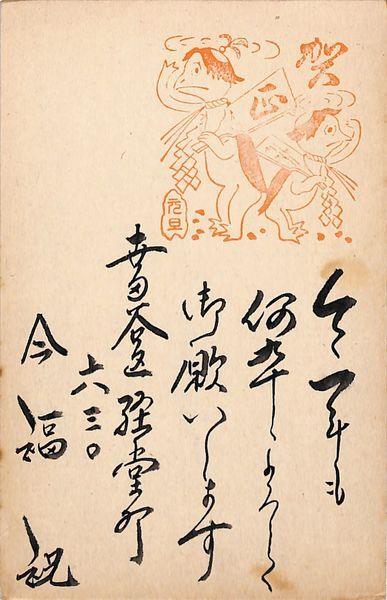 賀
正
元旦
今年も
何卒よろしく
御願いします
世田谷区経堂町
六三〇
今福祝